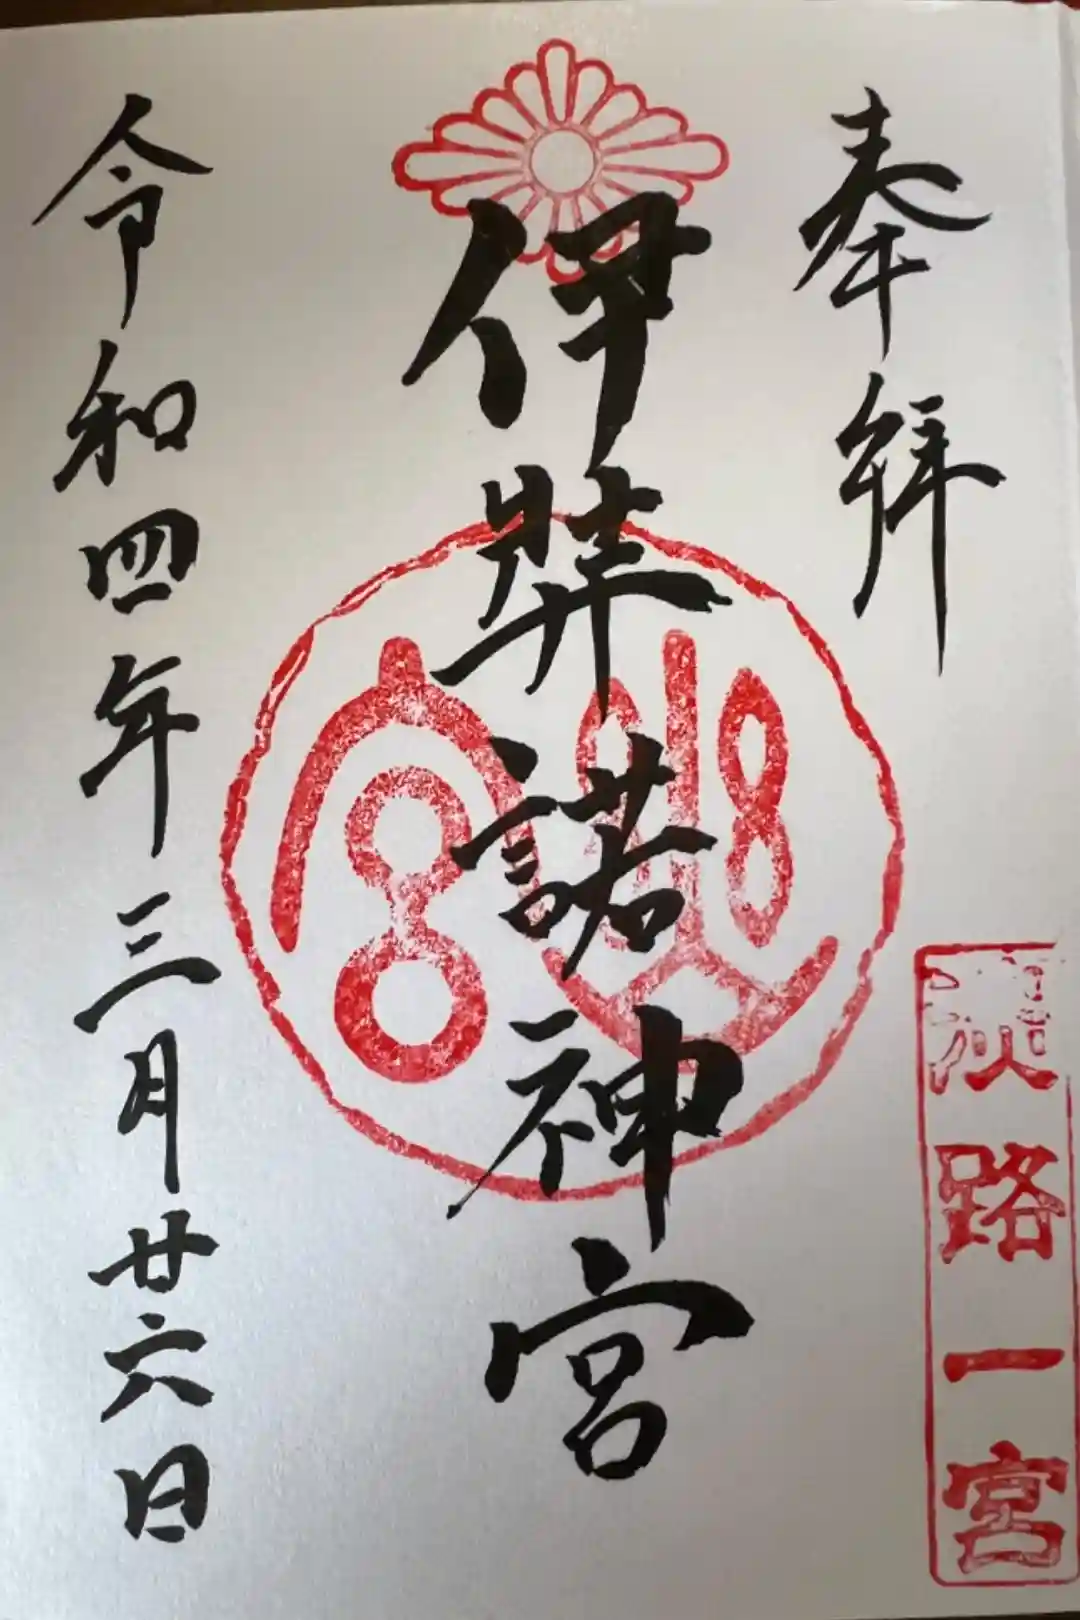 奉拜
淡路一宮
伊弉諾神宮
令和四年三月廿六日